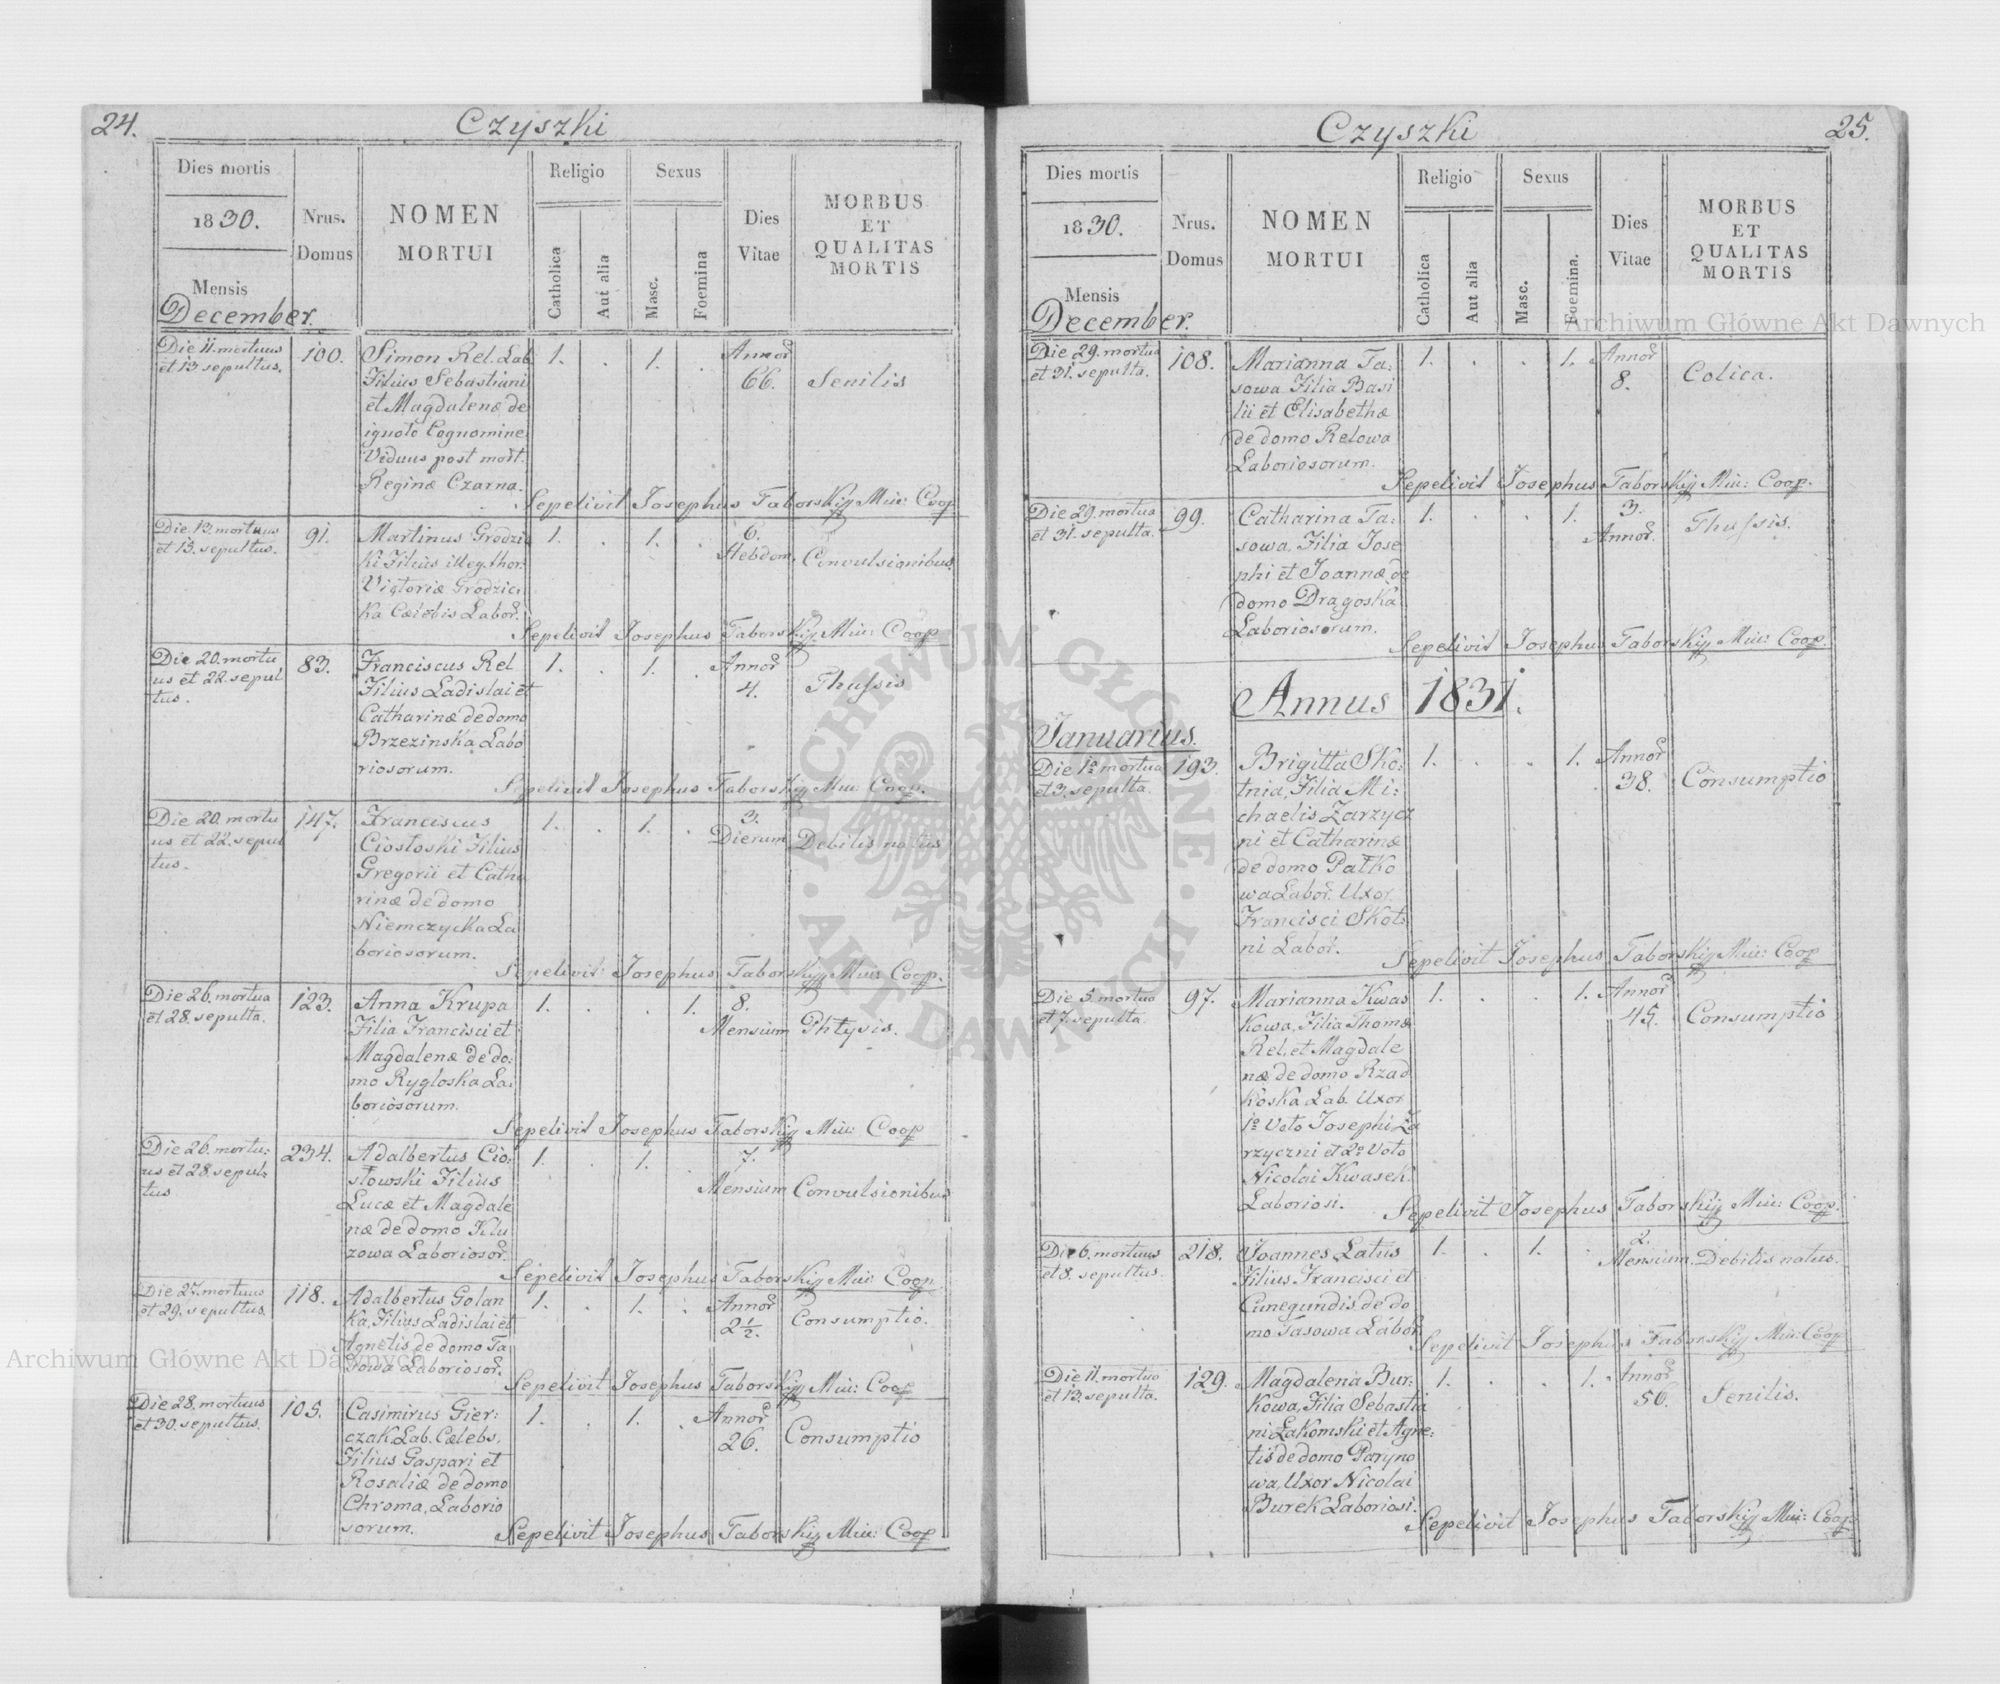 24.
Czyszki
Dies mortis
1830.
Mensis
December.
Nrus.
Domus
NOMEN
MORTUI
Religio
Catholica
Aut alia
Sexus
Masc.
Foemina
Dies
Vitae
MORBUS
ET
QUALITAS
MORTIS
Die 11. mortuus
et 13. sepultus.
100.
Simon Rel. Lab.
Filius Sebastiani
et Magdalenæ de
ignoto Cognomine
Viduus post mort.
Reginæ Czarna.
1. . 1. .
Annor
66.
Senilis
Sepelivit Josephus Taborskij Min: Coop.
Die 13. mortuus
et 15. sepultus.
91.
Martinus Grodzic
ki Filius illeg. thor:
Victoriæ Grodzic:
ka Cælebis Labor.
1. . 1. .
6.
Hebdom.
Convulsionibus.
Sepelivit Josephus Taborskij Min: Coop
Die 20. mortu
us et 22. sepul
tus.
83.
Franciscus Rel
Filius Ladislai et
Catharinæ de domo
Brzezinska Labo
riosorum.
1. . 1. .
Annor
4.
Thussis
Sepelivit Josephus Taborskij Min: Coop.
Die 20. mortu
us et 22. sepul
tus.
147.
Franciscus
Ciostoski Filius
Gregorii et Catha
rinæ de domo
Niemczycka La
boriosorum.
1. . 1. .
3.
Dierum
Debilis natus
Sepelivit Josephus Taborskij Min: Coop.
Die 26. mortua
et 28. sepulta.
123.
Anna Krupa
Filia Francisci et
Magdalenæ de do:
mo Rygloska La:
boriosorum.
1. . . 1.
8.
Mensium
Phtysis.
Sepelivit Josephus Taborskij Min: Coop
Die 26. mortu:
us et 28. sepul:
tus
234.
Adalbertus Cio:
słowski Filius
Lucæ et Magdale
næ de domo Klu
zowa Laboriosor.
1. . 1.
7.
Mensium
Convulsionibus
Sepelivit Josephus Taborskij Min: Coop
Die 27. mortuus
et 29. sepultus.
118.
Adalbertus Golan
ka, Filius Ladislai et
Agnetis de domo Ta
sowa Laboriosor.
1. . 1. .
Annor
2 1/2.
Consumptio.
Sepelivit Josephus Taborskij Min: Coop
Die 28. mortuus
et 30. sepultus.
105.
Casimirus Gier:
czak Lab. Cælebs,
Filius Gaspari et
Rosaliæ de domo
Chroma, Laborio
sorum.
1. . 1. .
Annor
26.
Consumptio
Sepelivit Josephus Taborskij Min: Coop
25.
Czyszki
Dies mortis
1830.
Mensis
December.
Nrus.
Domus
NOMEN
MORTUI
Religio
Catholica
Aut alia
Sexus
Masc.
Foemina.
Dies
Vitae
MORBUS
ET
QUALITAS
MORTIS
Die 29. mortua
et 31. sepulta.
108.
Marianna Ta:
sowa Filia Basi
lii et Elisabethæ
de domo Relowa
Laboriosorum.
1. . . 1.
Annor
8.
Colica.
Sepelivit Josephus Taborskij Min: Coop.
Die 29. mortua
et 31. sepulta.
99.
Catharina Ta:
sowa, Filia Jose
phi et Joannæ de
domo Drągoska
Laboriosorum.
1. . . 1.
3.
Annor.
Thussis.
Sepelivit Josephus Taborskij Min: Coop.
Annus 1831.
Januarius.
Die 1a mortua
et 3. sepulta.
193.
Brigitta Sko:
tnia, Filia Mi:
chaelis Zarzycz
ni et Catharinæ
de domo Patko
wa Labor. Uxor
Francisci Skot:
ni Labor.
1. . . 1.
Annor
38.
Consumptio
Sepelivit Josephus Taborskij Min: Coop
Die 5. mortua
et 7. sepulta.
97.
Marianna Kwas
kowa, Filia Thomæ
Rel, et Magdale
næ de domo Rzad
koska Lab. Uxor
1o Voto Josephi Za
rzyczni et 2o Voto
Nicolai Kwasek
Laboriosi.
1. . . 1.
Annor
45.
Consumptio
Sepelivit Josephus Taborskij Min: Coop.
Die 6. mortuus
et 8. sepultus.
218.
Joannes Latus
Filius Francisci et
Cunegundis de do
mo Tasowa Labor
1. . 1. .
2.
Mensium.
Debilis natus.
Sepelivit Josephus Taborskij Min: Coop
Die 11. mortua
et 13. sepulta.
129.
Magdalena Bur:
kowa, Filia Sebastia
ni Łakomski et Agne:
tis de domo Paryno
wa, Uxor Nicolai
Burek Laboriosi.
1. . . 1.
Annor
56.
Senilis.
Sepelivit Josephus Taborskij Min: Coop.
Archiwum Główne Akt Dawnych
Archiwum Główne Akt Dawnych
ARCHIWUM GŁÓWNE
AKT DAWNYCH